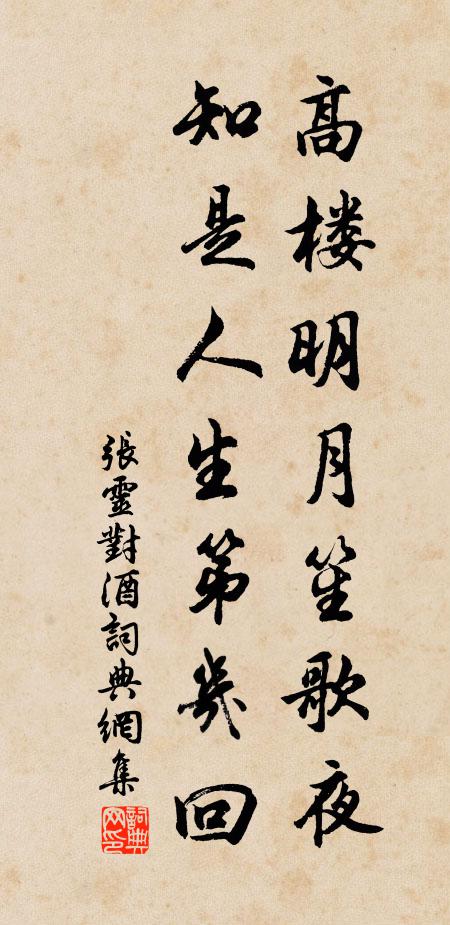 高楼明月笙歌夜
知是人生第幾回
張靈對酒詞典網集
詞典网印